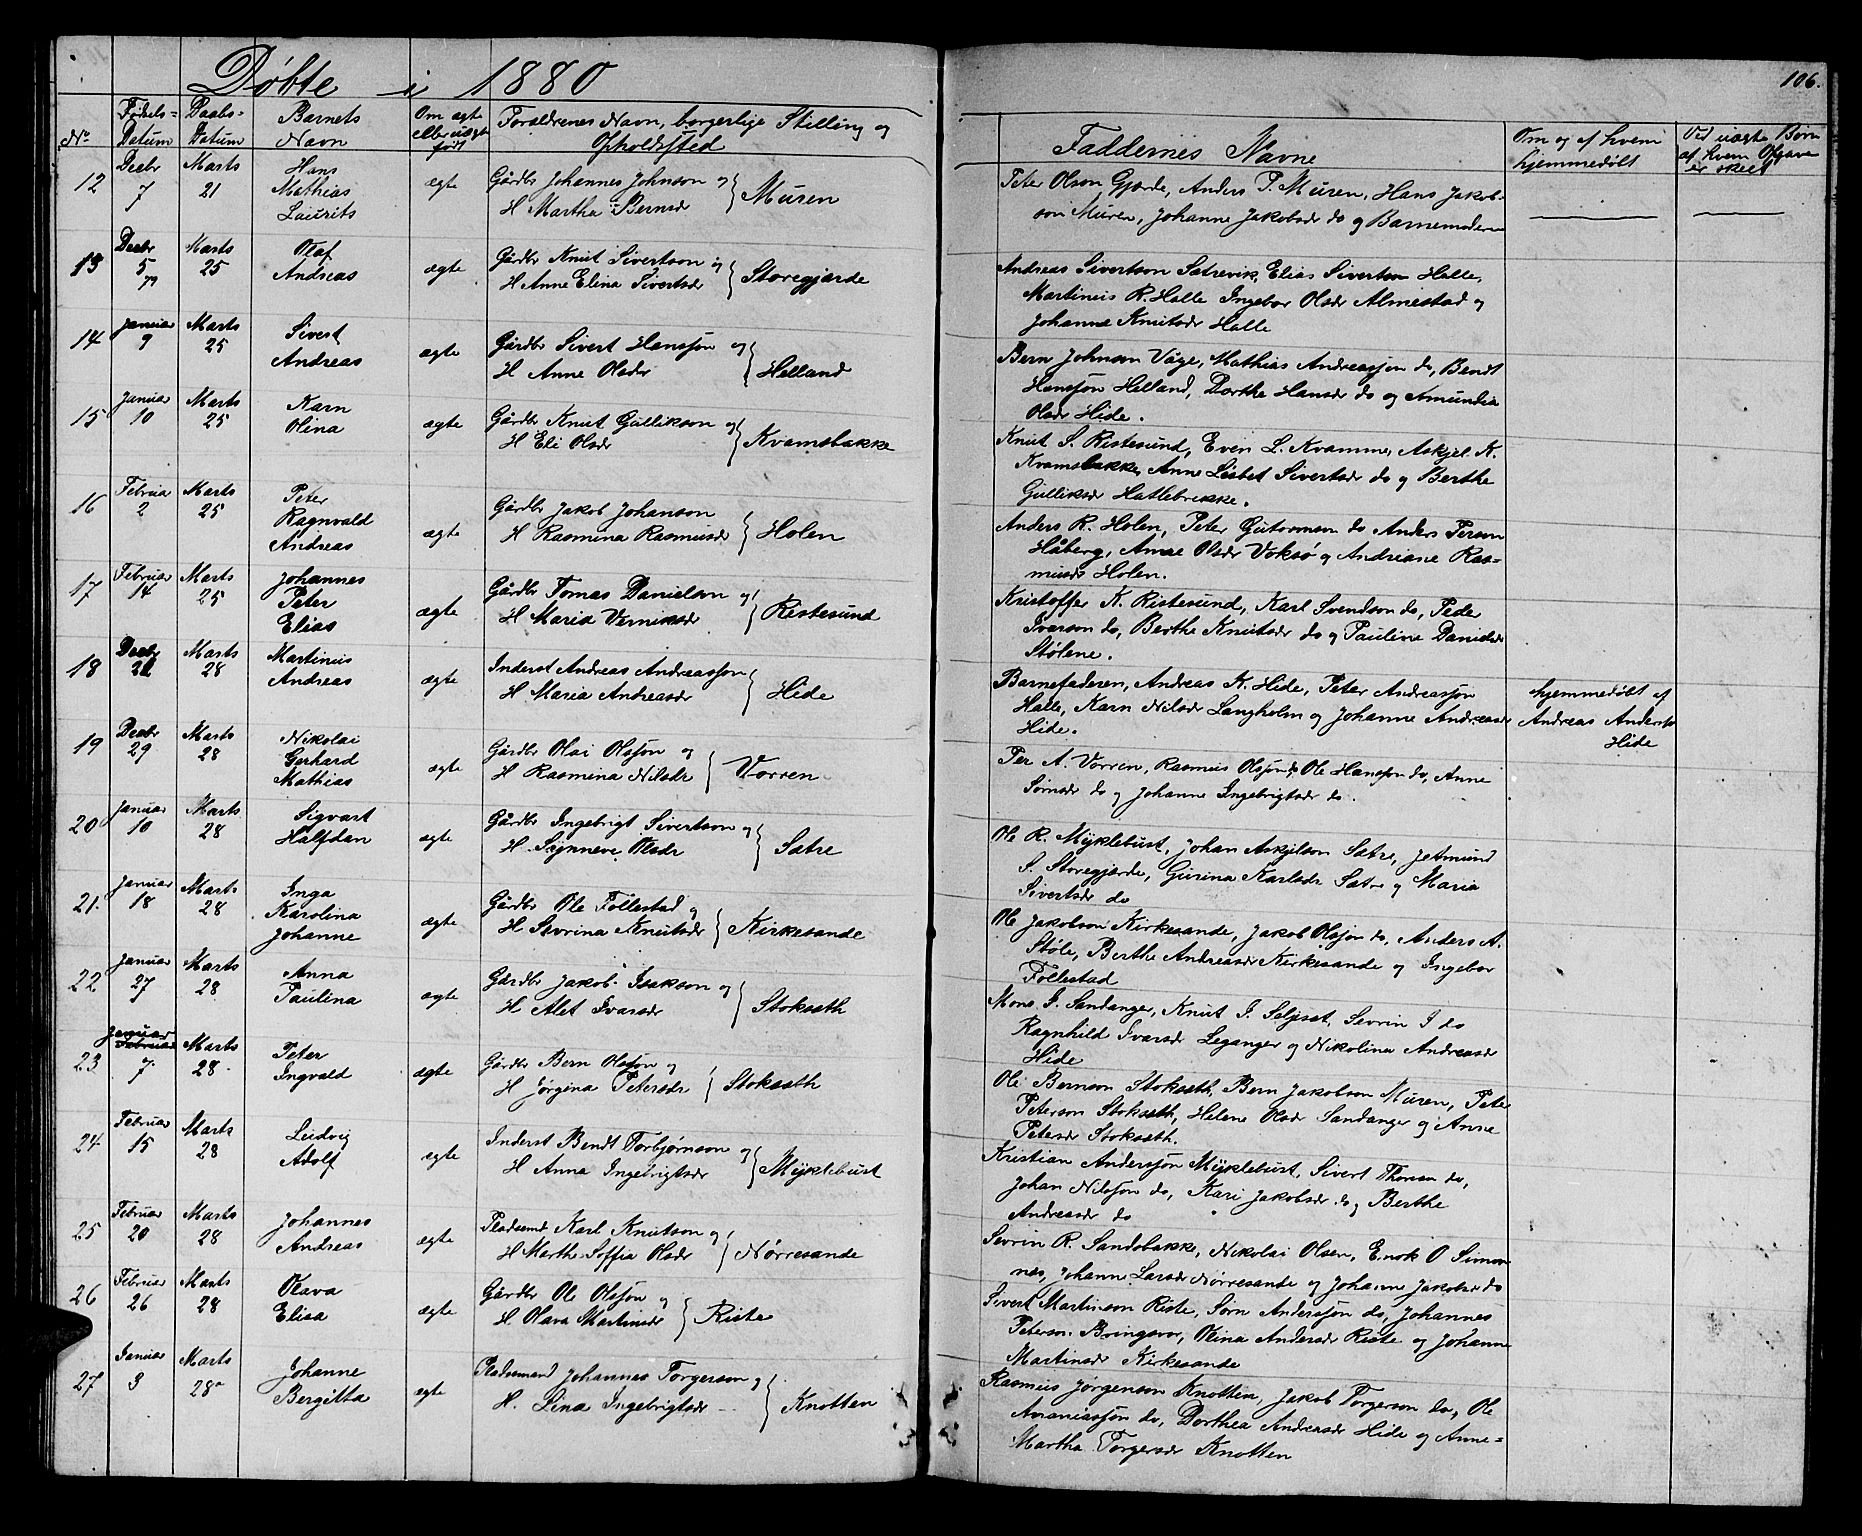 Døbte i 1880
106.
No
Fødsels=
Datum
Daabs=
Datum
Barnets
Navn
Om ægte
eller uægte
født
Foraldrenes Navn, borgerlige Stilling og
Opholdssted
Faddernes Navne
Om og af hvem
hjemmedøbt
Ved uagte Børn
af hvem Opgave
er skeet
12
Decbr
7
Marts
21
Hans
Mathias
Laurits
ægte
Gårdbr Johannes Johnson og
H Martha Bernsdr
Muren
Peter Olson Gjørde, Anders P. Muren, Hans Jakob-
son Muren, Johanne Jakobsdr do og Barnemoderen
13
Decbr
5
79
Marts
25
Olaf
Andreas
ægte
Gårdbr Knut Sivertson og
H Anne Elina Sivertsdr
Storegjærde
Andreas Sivertson Satrevik, Elias Sivertson Halle,
Martinus R. Halle Ingebor Olsdr Almestad og
Johanne Knutsdr Halle
14
Januar
9
Marts
25
Sivert
Andreas
ægte
Gårdbr Sivert Hanssøn og
H Anne Olsdr
Helland
Bern Johnson Våge, Mathias Andreassøn do, Bendt
Hanssøn Helland, Dorthe Hansdr do og Amundia
Olsdr Hide.
15
Januar
10
Marts
25
Karn
Olina
ægte
Gårdbr Knut Gullikson og
H Eli Olsdr
Kvamsbakke
Knut S. Ristesund, Even L. Kvamme, Askjel K.
Kvamsbakke, Anne Lisbet Sivertsdr do og Berthe
Gulliksdr Hatlebrekke.
16
Februar
2
Marts
25
Peter
Ragnvald
Andreas
ægte
Gårdbr Jakob Johanson
H Rasmina Rasmusdr
Holen
Anders R. Holen, Peter Gutormson do, Anders Person
Håberg, Anne Olsdr Voksø og Andriane Ras=
musdr Holen.
17
Februar
14
Marts
25
Johannes
Peter
Elias
ægte
Gårdbr Tomas Danielson og
H Maria Verniksdr
Ristesund
Kristoffer K. Ristesund, Karl Svendson do, Peder
Ivarson do, Berthe Knutsdr do og Pauline Danielsdr
Stølene.
18
Decbr
21
Marts
28
Martinus
Andreas
ægte
Inderst Andreas Andreassøn
H Maria Andreasdr
Hide
Barnefaderen, Andreas K. Hide, Peter Andreassøn
Halle, Karn Nilsdr Langholm og Johanne Andreasdr
Hide.
hjemmedøbt af
Andreas Anders
Hide
19
Decbr
29
Marts
28
Nikolai
Gerhard
Mathias
ægte
Gårdbr Olai Olssøn og
H Rasmina Nilsdr
Vorren
Per A. Vorren, Rasmus Olssøn do, Ole Hanssøn do, Anne
Sørnsdr do og Johanne Ingebrigtsdr do.
20
Januar
10
Marts
28
Sigvart
Halfdan
ægte
Gårdbr Ingebrigt Sivertson og
H Synneve Olsdr
Satre
Ole R. Myklebust, Johan Askjelson Satre, Jetmund
S. Storegjærde, Gurina Karlsdr Satre og Maria
Sivertsdr do
21.
Januar
18
Marts
28
Inga
Karolina
Johanne
ægte
Gårdbr Ole Follestad og
H Sevrina Knutsdr
Kirkesande
Ole Jakobson Kirkesande, Jakob Olssøn do, Anders A.
Støle, Berthe Andreasdr Kirkesande og Ingebor
Follestad
22
Januar
27
Marts
28
Anna
Paulina
ægte
Gårdbr Jakob Isakson og
H Alet Ivarsdr
Stoksæth
Mons J. Sandanger, Knut J. Seljeset, Sevrin J do
Ragnhild Ivarsdr Leganger og Nikolina Andreasdr
Hide
23
Januar
Februar
7
Marts
28
Peter
Ingvald
ægte
Gårdbr Bern Olssøn og
H Jørgina Petersdr
Stoksæth
Ole Bernson Stoksæth, Bern Jakobson Muren, Peter
Peterson Stoksæth, Helene Olsdr Sandanger og Anne
Petersdr Stoksæth.
24
Februar
15
Marts
28
Ludvig
Adolf
ægte
Inderst Bendt Torbjørnson og
H Anna Ingebrigtsdr
Myklebust
Kristian Anderssøn Myklebust, Sivert Thoreson do,
Johan Nilssøn do, Kari Jakobsdr do og Berthe
Andreasdr do
25
Februar
20
Marts
28
Johannes
Andreas
ægte
Pladsemd Karl Knutson og
H Marthe Soffia Olsdr
Nørresande
Sevrin R. Sandsbakke, Nikolai Olsen, Enok O Simon
nes, Johanne Larsdr Nørresande og Johanne Jakobsdr do
26
Februar
26
Marts
28
Olava
Elisa
ægte
Gårdbr Ole Olssøn og
H Olava Martinsdr
Riste
Sivert Martinson Riste, Sørn Anderssøn do, Johannes
Peterson Bringsvor, Olina Andersdr Riste og Johanne
Martinsdr Kirkesande
27
Januar
3
Marts
28
Johanne
Bergitta
ægte
Pladsemand Johannes Torgerson og
H. Lina Ingebrigtsdr
Knotten
Rasmus Jørgenson Knotten, Jakob Torgerson do, Ole
Ananiassøn do, Dorthea Andreasdr Hide og Anne=
Martha Torgersdr Knotten